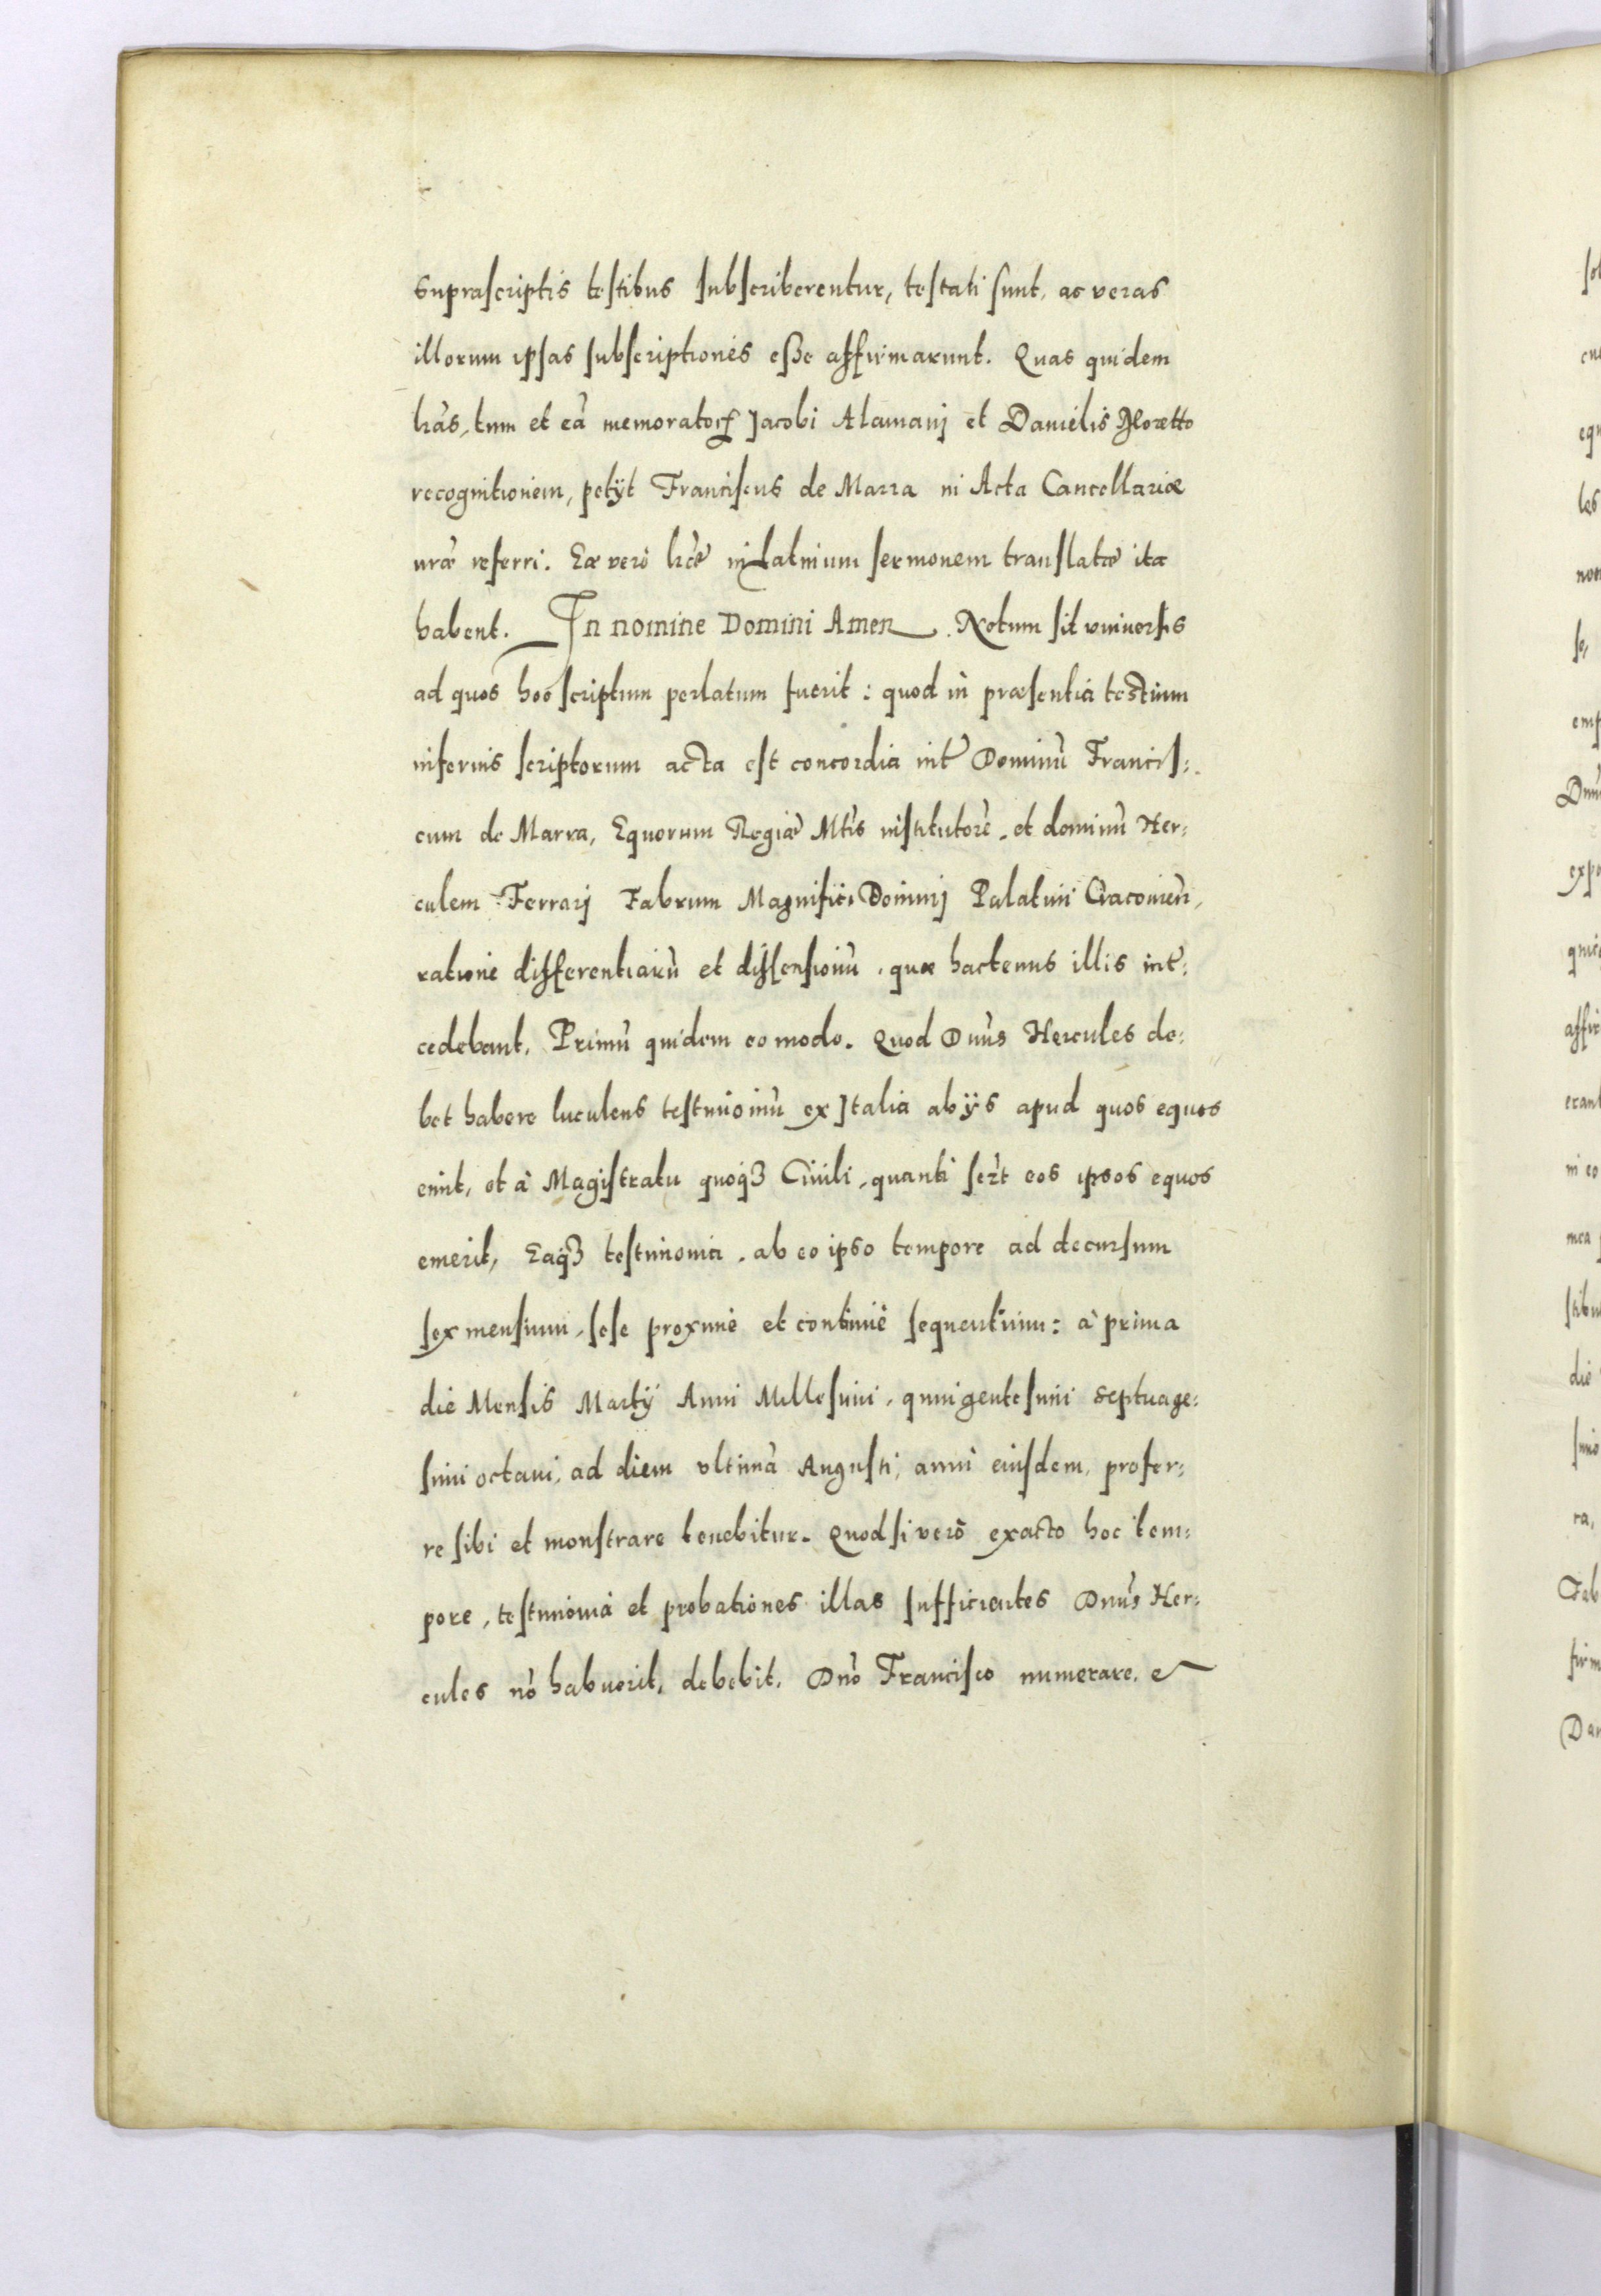 suprascriptis testibus subscriberentur, testati sunt, ac veras
illorum ipsas subscriptiones esse affirmarunt. Quas quidem
lr̃as, tum et eã memoratoꝝ Jacobi Alamanj et Danielis
recognitionem, petÿt Franciscus de Marra in Acta Cancellariæ
nr̃æ referri. Eæ verò lr̃æ in Latinum sermonem translatæ ita
habent. In nomine Domini Amen. Notum sit vniuersis
ad quos hoc scriptum perlatum fuerit: quod in præsentia testium
inferius scriptorum acta est concordia int̃ Dominũ Francis:
cum de Marra, Equorum Regiæ Mt̃is institutorẽ, et dominũ Her:
culem Ferrarj Fabrum Magnifici Dominj Palatini Cracouień,
ratione differentiarũ et dissensionũ, quæ hactenus illis int̃:
cedebant, Primũ quidem eo modo. Quod Dnũs Hercules de:
bet habere luculens testimoniũ ex Jtalia ab ÿs apud quos equos
emit, et à Magistratu quoqꝫ Ciuili, quanti ser̃t eos ipsos equos
emerit, Eaqꝫ testimonia, ab eo ipso tempore ad decursum
sex mensium, sese proxime et continuè sequentium: à prima
die Mensis Martÿ Anni Millesimi, quingentesimi septuage:
simi octaui, ad diem vltimã Augusti, anni eiusdem, profer:
re sibi et monstrare tenebitur. Quod si verò exacto hoc tem:
pore, testimonia et probationes illas sufficientes Dnũs Her:
cules nõ habuerit, debebit, Dnõ Francisco numerare, e